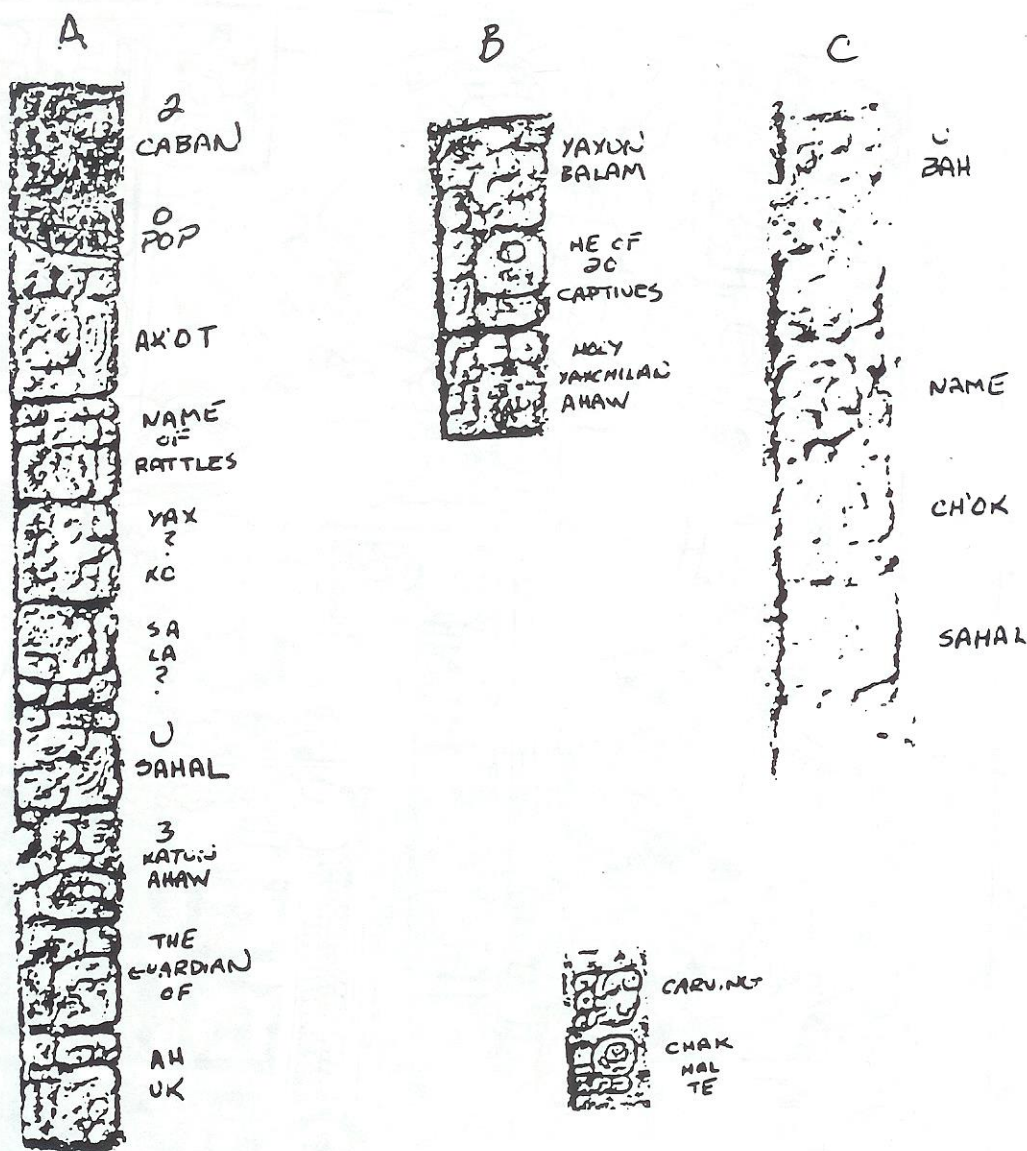 A
2
CABAN
0
POP
AK'OT
NAME
OF
RATTLES
YAX
?
KO
SA
LA
?
U
SAHAL
3
KATUN
AHAW
THE
GUARDIAN
OF
AH
UK
B
YAXUN
BALAM
HE OF
20
CAPTIVES
HOLY
YAXCHILAN
AHAW
C
U
BAH
NAME
CH'OK
SAHAL
CARVING
CHAK
HAL
TE